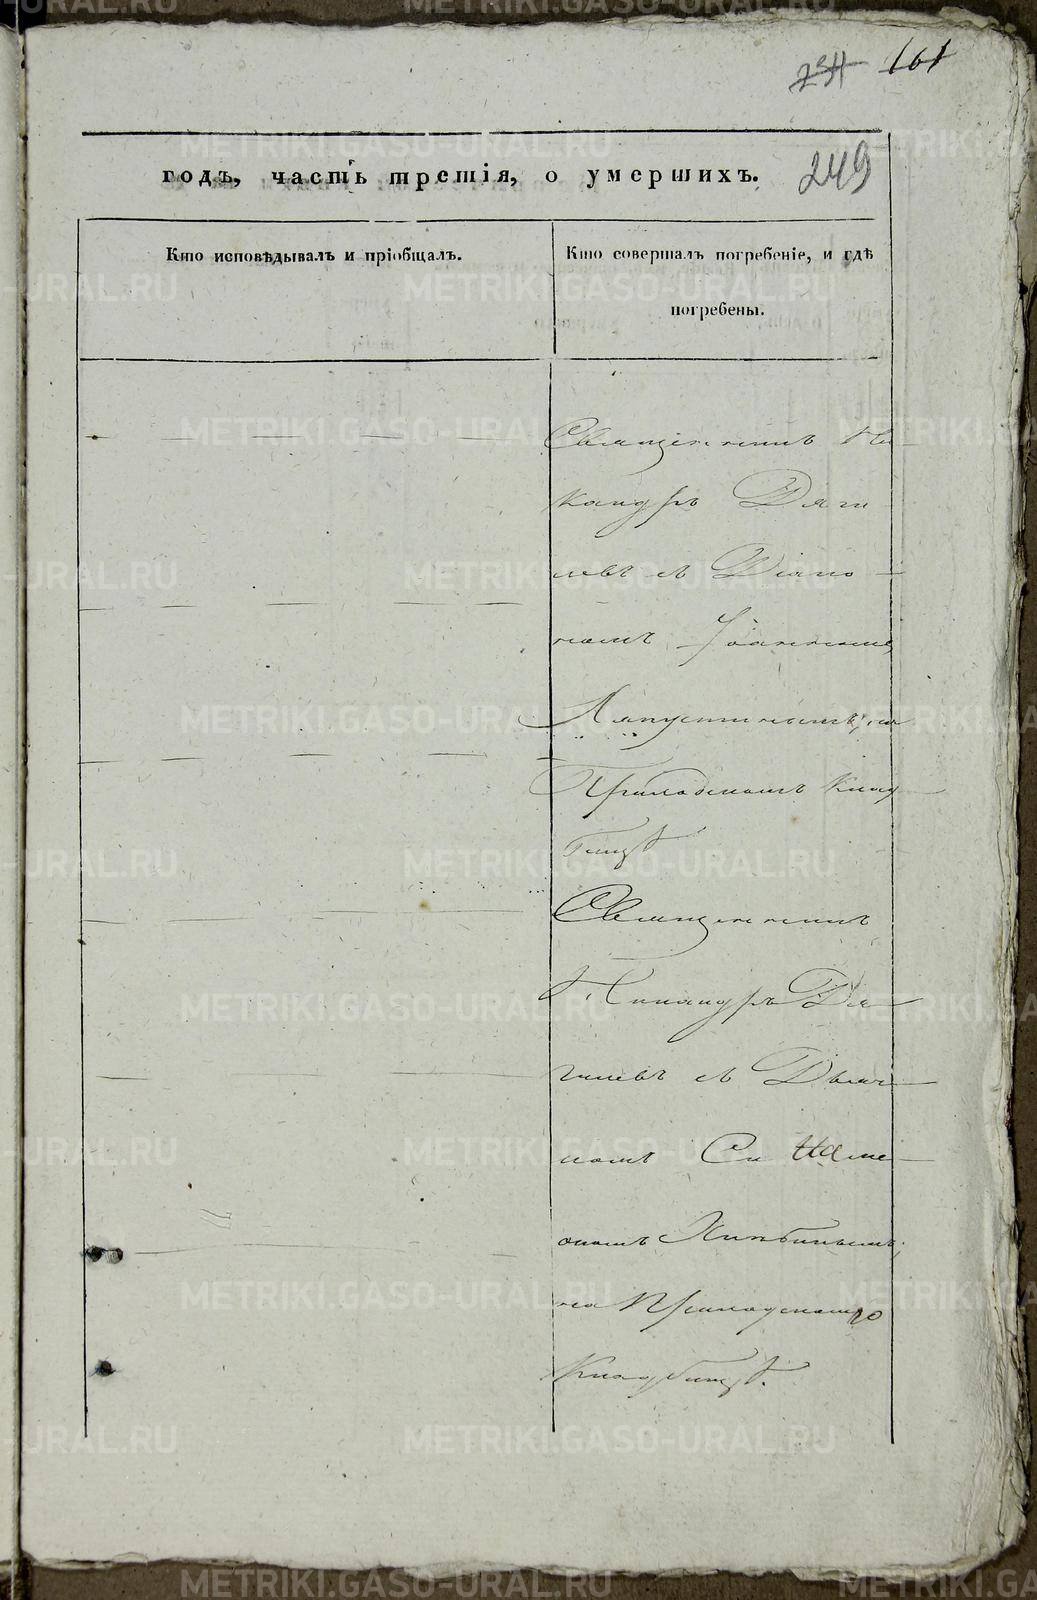 234 161
годъ, часть третія, о умершихъ. 249
Кто исповѣдывалъ и пріобщалъ.
Кто совершалъ погребеніе, и гдѣ
погребены.
Священникъ Ни
кандръ Дяги
левъ съ Діако
номъ Іоанномъ
Ляпустинымъ, на
Приходскомъ Клад
бищѣ
Священникъ
Никандръ Дя
гилевъ съ Дьяч
комъ Си
ономъ
на Приходскомъ
Кладбищѣ.
METRIKI.GASO-URAL.RU